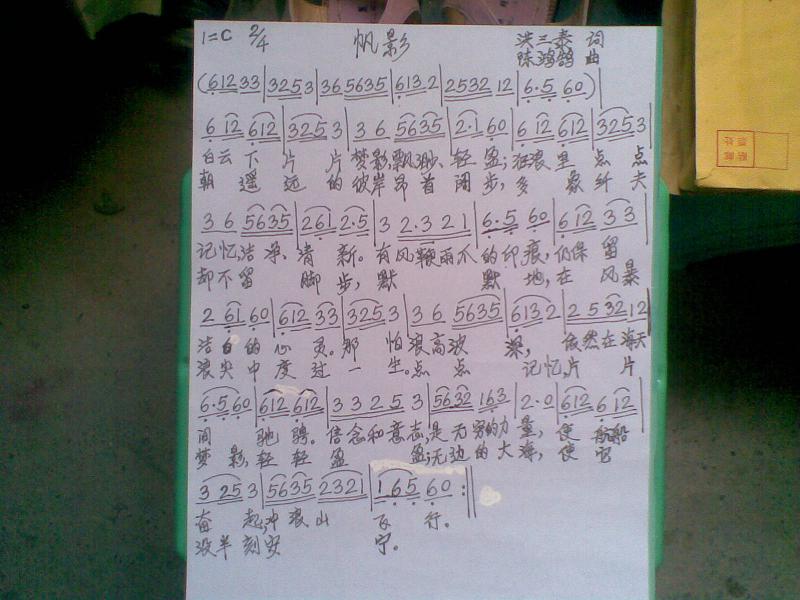 1=C 2/4 帆影 洪三泰 词
陈鸿鹄 曲
(61233|3253|365635|613.2|253212|6·560)|
612612|3253|365635|2·160|612612|3253|
白云下片片梦影,飘渺、轻盈;在浪里点点
朝遥远的彼岸昂首阔步,多象纤夫
365635|2612·5|32·321|6·560|61233|
记忆,洁净、清新。有风鞭雨爪的印痕,仍保留
却不留脚步,默默地,在风暴
26160|61233|3253|365635|6132|253212|
洁白的心灵。那怕浪高波深,依然在海天
浪尖中度过一生。点点记忆,片片
6·560|612612|33253|5632163|2·0|612612|
间驰骋。信念和意志,是无穷的力量,使帆船
梦影,轻轻盈盈;无边的大海,使它
3253|56352321|16560:||
奋起,冲浪山飞行。
没半刻安宁。